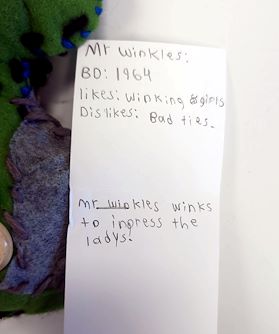 Mr Winkles:
BD: 1964
likes: Winking & girls
Dislikes: Bad ties.
mr winkles winks
to inpress the
ladys.